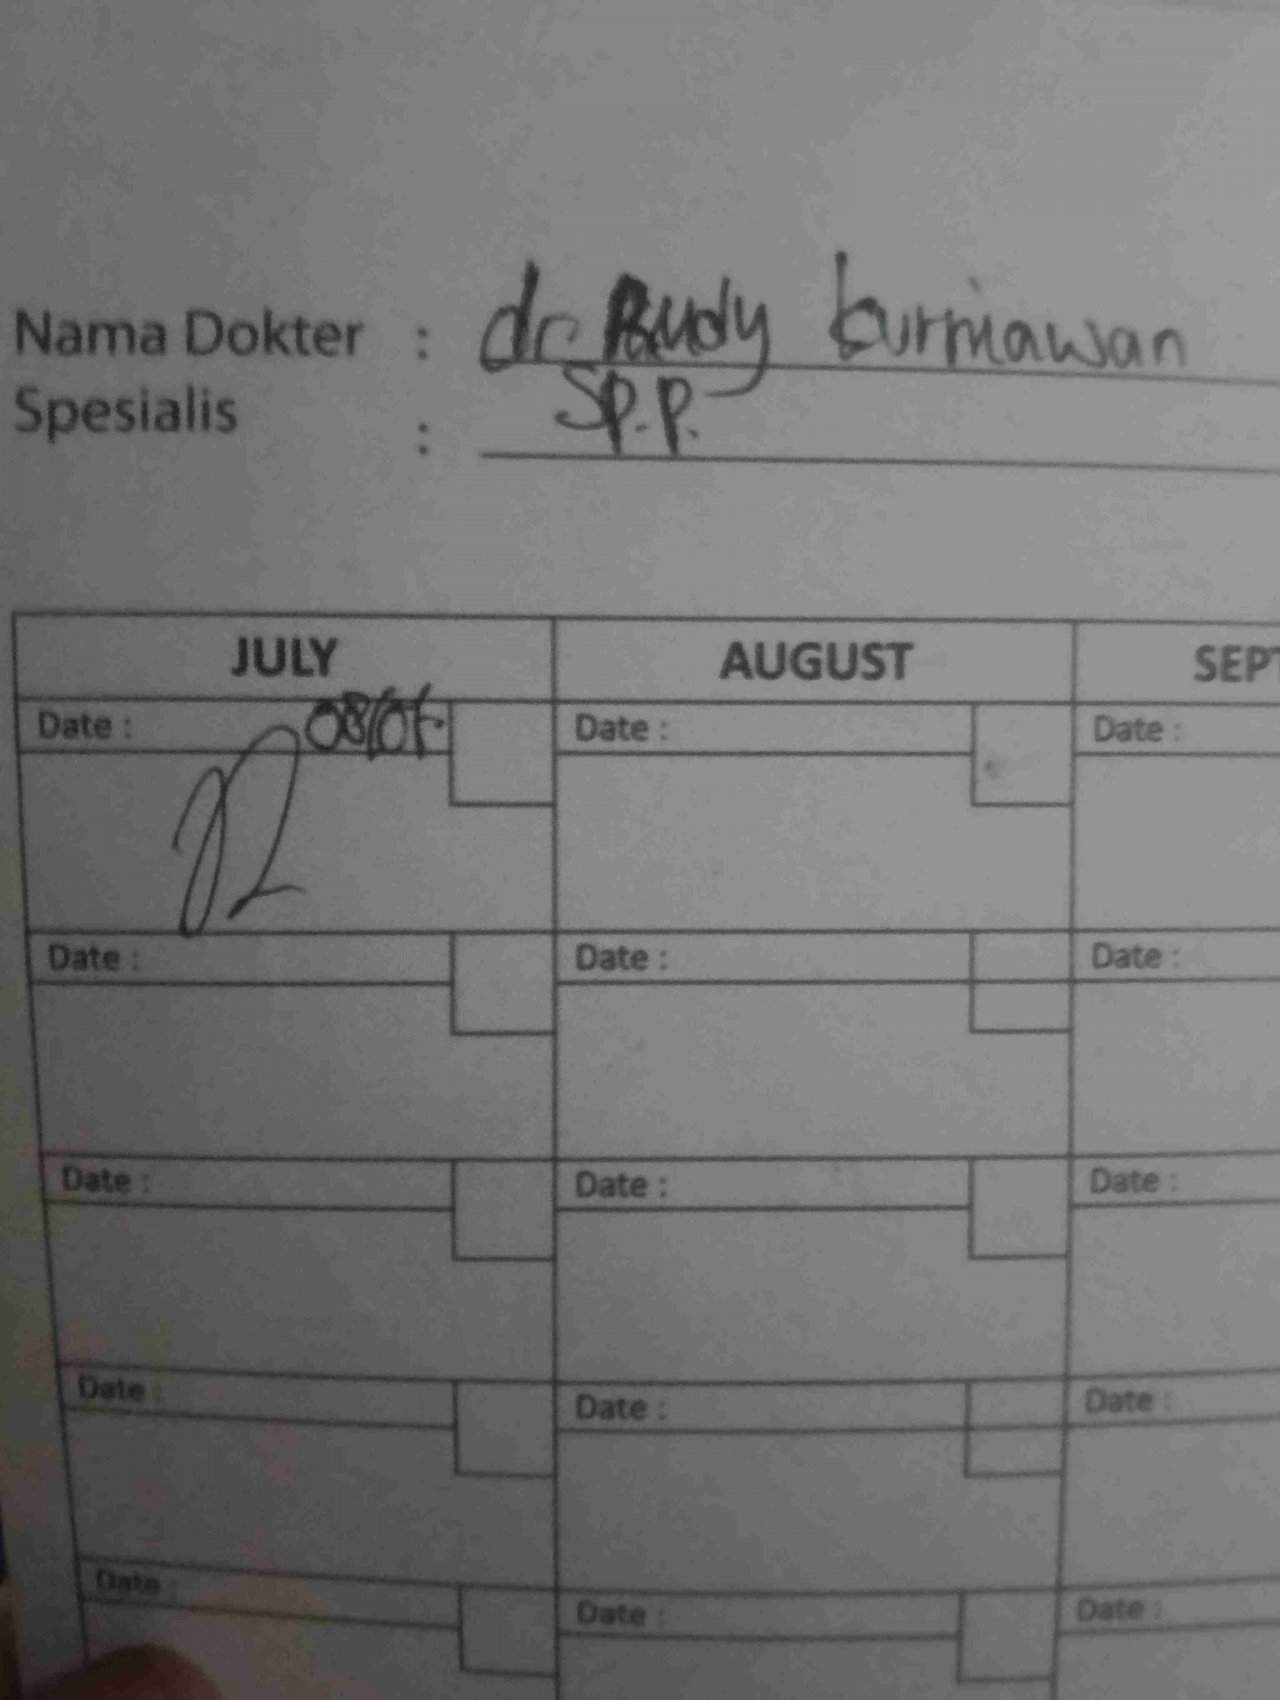 Nama Dokter : dr Rudy kurniawan
Spesialis : Sp.p.
JULY AUGUST SEPT
Date : 08/07. Date : Date :
Date : Date : Date :
Date : Date : Date :
Date : Date : Date :
Date : Date : Date :